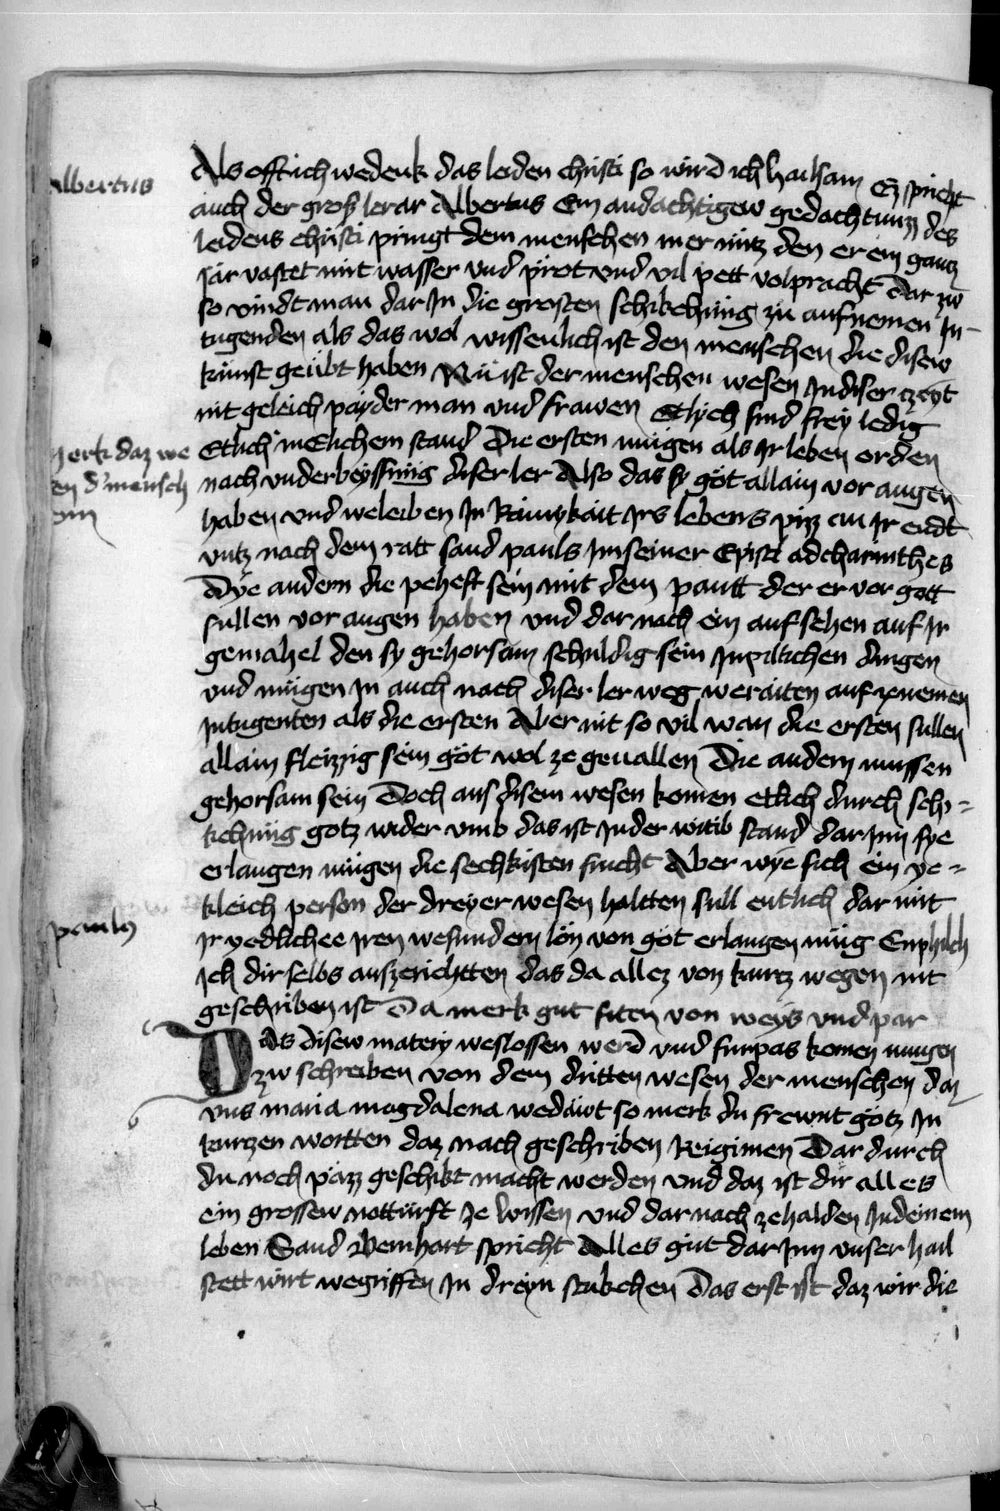 Albertus
Als offt ich wedenk das leiden christi so wird ich hailsam Ez spricht
auch der groß lerar Albertus Ein andachtigew gedachtnuzz des
leidens christi pringt dem menschen mer nutz den er ein gantz
Jar vastet mit wasser vnd prot vnd vil pett volpracht Dar zw
so vindt man dar Jn die grosten schikchung zu aufnemen Jn-
tugenden als das wol wissenlich ist den menschen die disew
kunst geubt haben Nu ist der menschen wesen Jn diser czeyt
nit geleich payder man vnd frawen Etlych sind frey ledig
Etlich in Elichem stand Die ersten mugen als Jr leben orden
merk daz we
en d' mensch
nach vnderbeyssung diser ler Also das sy got allain vor augen
haben vnd weleiben Jn Rainykait Jrs lebens pizz an Jr endt
vntz nach dem ratt sand pauls Jn seiner Epistl ad charinthes
Dye andern die peheft sein mit dem pantt der er vor gott
sullen vor augen haben vnd dar nach ein aufsehen auf Jr
gemahel den sy gehorsam schuldig sein Jn pillichen dingen
vnd mugen Jn auch nach diser ler weg weraiten auf zenemen
Jn tugenten als die ersten Aber nit so vil wan die ersten sullen
allain fleizzig sein got wol ze geuallen Die andern mussen
gehorsam sein Doch aus disem wesen komen etlich durch schi-
kchung gotz wider vmb das ist Jn der witib stand dar Jnn sye
erlangen mugen die sechkisten frucht Aber wye sich ein ye-
kleich person der dreyer wesen haltten sull entlich dar mit
paulus
Jr yedlichee Jren wesundern lon von got erlangen mug Enphilch
Jch dir selbs auszerichtten das da allez von kurtz wegen nit
geschriben ist Da merk gut siten von weys vnd par
Das disew matery weslossen werd vnd furpas komen mugen
zw schreiben von dem dritten wesen der menschen daz
vns maria magdalena wedawt so merk du frewnt gotz Jn
kurtzen wortten daz nach geschriben Reigimen Dar durch
du noch pazz geschikt macht werden vnd daz ist dir alles
ein grossew notturft ze wissen vnd dar nach ze halden Jn deinem
leben Sand Bernhart spricht Alles gut dar Jnn vnser hail
stett wirt wegriffen Jn dreyn stukchen Das erst ist daz wir die